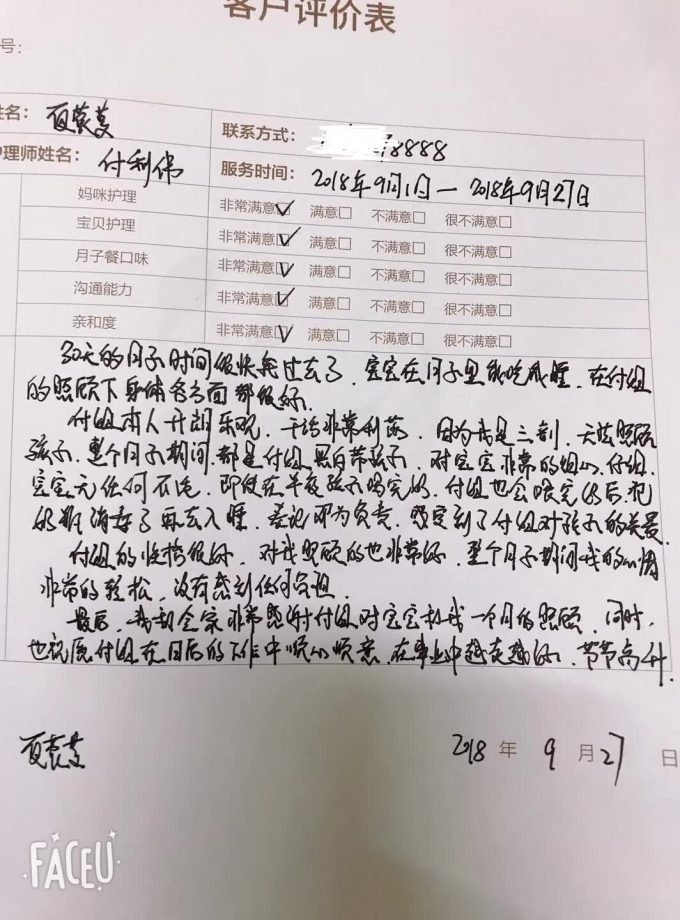 客户评价表
号：
姓名：夏蓂蔓 联系方式：8888
护理师姓名：付利伟 服务时间：2018年9月1日—2018年9月27日
妈咪护理 非常满意☑ 满意☐ 不满意☐ 很不满意☐
宝贝护理 非常满意☑ 满意☐ 不满意☐ 很不满意☐
月子餐口味 非常满意☑ 满意☐ 不满意☐ 很不满意☐
沟通能力 非常满意☑ 满意☐ 不满意☐ 很不满意☐
亲和度 非常满意☑ 满意☐ 不满意☐ 很不满意☐
30天的月子时间很快就过去了，宝宝在月子里能吃能睡，在付姐
的照顾下身体各方面都很好。
付姐本人开朗乐观，干活非常利落，因为我是三剖，无法照顾
孩子，整个月子期间，都是付姐黑白带孩子，对宝宝非常的细心、仔细，
宝宝无任何不适，即使在半夜孩子吃完奶，付姐也会喂完奶后，把
奶瓶消毒了再去入睡，认真负责，感受到了付姐对孩子的关爱
付姐的性格很好，对我照顾的也非常好，整个月子期间我的心情
非常的轻松，没有感到任何负担。
最后，我和全家非常感谢付姐对宝宝和我一个月的照顾，同时，
也祝愿付姐在日后的工作中顺心顺意，在事业中越走越好，节节高升
2018年9月27日
FACEU